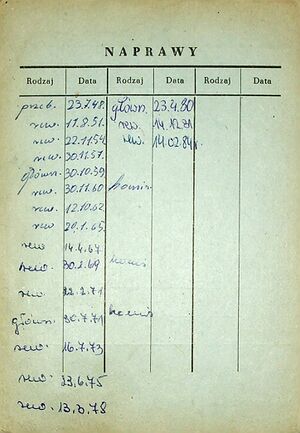 NAPRAWY
Rodzaj Data Rodzaj Data Rodzaj Data
przeb. 23.7.48. główn. 23.4.80
rew. 17.8.51. rew. 14.12.81
rew. 22.11.54 rew. 14.02.84r.
rew. 30.11.57.
główn. 30.10.59
rew. 30.11.60
rew. 12.10.62
rew. 20.1.65
rew 14.4.67
rew. 30.1.69
rew. 22.2.71
główn. 30.7.71
rew. 16.7.73
rew. 23.6.75
rew. 13.3.78